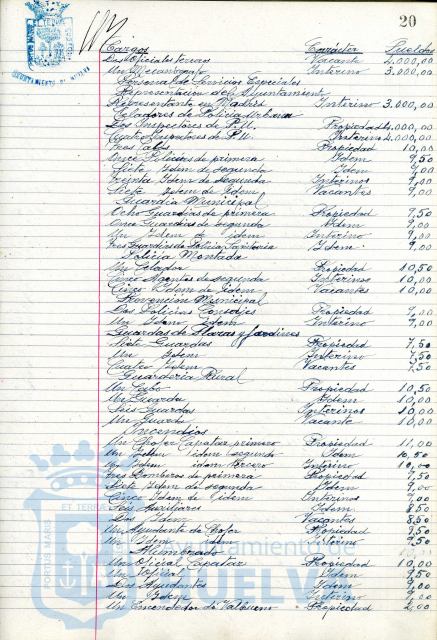 20
Cargos Carácter Sueldos
Dos Oficiales terceros Vacante 2.000,00
Un Mecanógrafo Interino 3.000,00
Personal de Servicios Especiales
Representación del Ayuntamiento
Representante en Madrid Interino 3.000,00
Celadores de Policía Urbana
Dos Inspectores de P.U. Propiedad 4.000,00
Cuatro Inspectores de P.U. Interino 4.000,00
Tres Cabos Propiedad 10,00
Once Policías de primera Idem 9,50
Siete Idem de segunda Idem 9,00
Treinta Idem de segunda Interinos 9,00
Siete Idem de Idem Vacantes 9,00
Guardia Municipal
Ocho Guardias de primera Propiedad 7,50
Cinco Guardias de segunda Idem
Un Idem de Idem Interino
Tres Guardias de Policía Sanitaria Idem
Policía Montada
Un Celador Propiedad 10,50
Cinco Agentes de segunda Interinos 10,00
Cinco Idem de Idem Vacantes 10,00
Prevención Municipal
Dos Policías Conserjes Propiedad
Un Idem Idem Interino
Guardas de Plazas y Jardines
Siete Guardas Propiedad 7,50
Un Idem Interino 7,50
Cuatro Idem Vacantes 7,50
Guardería Rural
Un Cabo Propiedad 10,50
Un Guarda Idem 10,00
Seis Guardas Interinos 10,00
Un Guarda Vacante 10,00
Incendios
Un Chofer Capataz primero Propiedad 11,00
Un Idem idem segundo Idem 10,50
Un Idem idem tercero Interino 10,00
Tres Bomberos de primera Propiedad 7,50
Idem de segunda Idem
Cinco Idem de Idem Interinos
Seis Auxiliares Idem 8,50
Dos Idem Vacantes 8,50
Un Ayudante de Chofer Propiedad 9,50
Un Idem Idem Interino
Alumbrado
Un Oficial Capataz Propiedad 10,00
Un Oficial Idem 9,50
Dos Ayudantes Idem
Un Idem Interino
Un Encendedor de Propiedad 2,00
PORTUS MARIS
ET TERRA
Ayuntamiento de
HUELVA